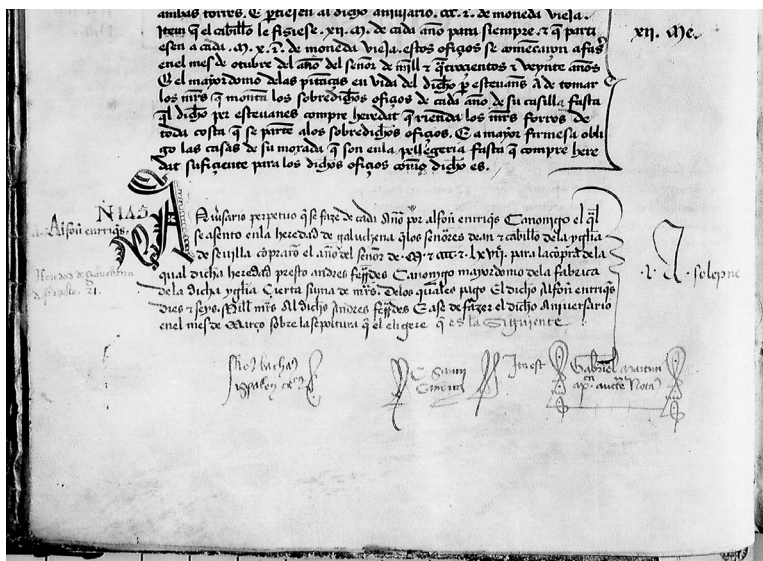 ambas torres. E ptiesen al dicho aniuario. cix. r. de moneda vieja.
Item q̃ el cabillo le fisiese. xii. m̃. de cada año para siempre. ⁊ q̃ parti
esen a cada. m̃. x. r̃. de moneda vieja. estos ofiçios se comẽçaron a fas̃
enel mes de otubre del año del señor de mill ⁊ q̃trocientos ⁊ veynte años
E el mayordomo delas pitãças en vida del dicho p̃o esteuanes a de tomar
los mr̃s q̃ montã los sobredichos ofiçios de cada año de su casilla fasta
q̃l dicho per esteuanes compre heredat q̃ rienda los mr̃s forros de
toda costa q̃ se parte alos sobredichos ofiçios. E a mayor firmesa obli
go las casas de su morada q̃ son enla pellegeria fasta q̃ compre here
dat sufiçiente para los dichos ofiçios como dicho es.
xii. Me.
N 145
Alfon enrriqs̃.
Heredad de galuchena
Aniũsario perpetuo q̃ se faze de cada Año por alfoñ enrriqs̃ Canonigo el q̃l
se asento enla heredad de galuchena q̃ los señores dean ⁊ cabildo dela yglia
de seuilla cõpraro el año del señor de. M. ⁊ cccc. ⁊. lxvii. para la cõpra dela
qual dicha heredad presto andres ferrãdes Canonigo mayordomo dela fabrica
de la Dicha yglia Çierta suma de mr̃s. Delos quales pago El dicho Alfon enrriqs̃
dies ⁊ seys. Mill mr̃s Al Dicho Andres ferrãdes E a se de fazer el dicho Aniuersario
enel mes de Março sobre la sepoltura q̃ el eligere q̃ es la siguiente
.I. solepne
Ita est
Gabriel martin
apc̃a. aucte Nota